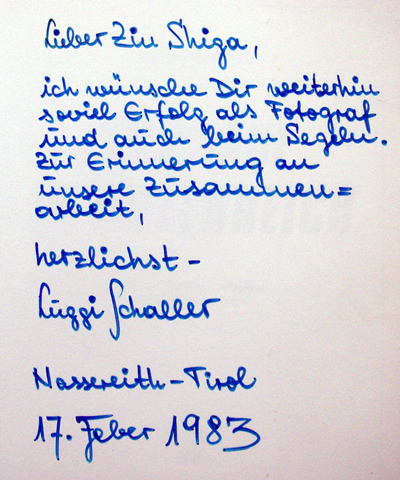 Lieber Ziu Shiga,
ich wünsche Dir weiterhin
soviel Erfolg als Fotograf
und auch beim Segeln.
Zur Erinnerung an
unsere Zusammen=
arbeit,
herzlichst -
Luggi Schaller
Nassereith - Tirol
17. Feber 1983